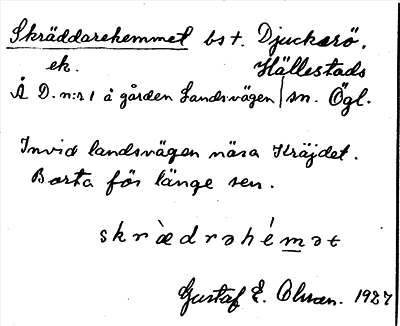 Skräddarehemmet bst. Djuckerö.
ek. Hällestads
Å D. n:r 1 å gården Landsvägen sn. Ögl.
Invid landsvägen nära Kräjdet.
Borta för länge sen.
skrædrəhémət
Gustaf E. Olman. 1927